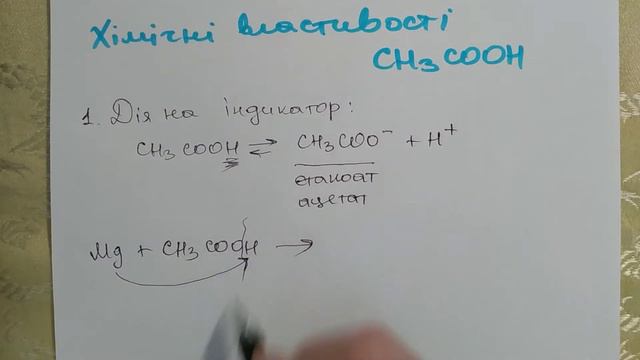 Хімічні властивості
CH3COOH
1. Дія на індикатор:
CH3COOH ⇌ CH3COO⁻ + H⁺
етаноат
ацетат
Mg + CH3COOH →